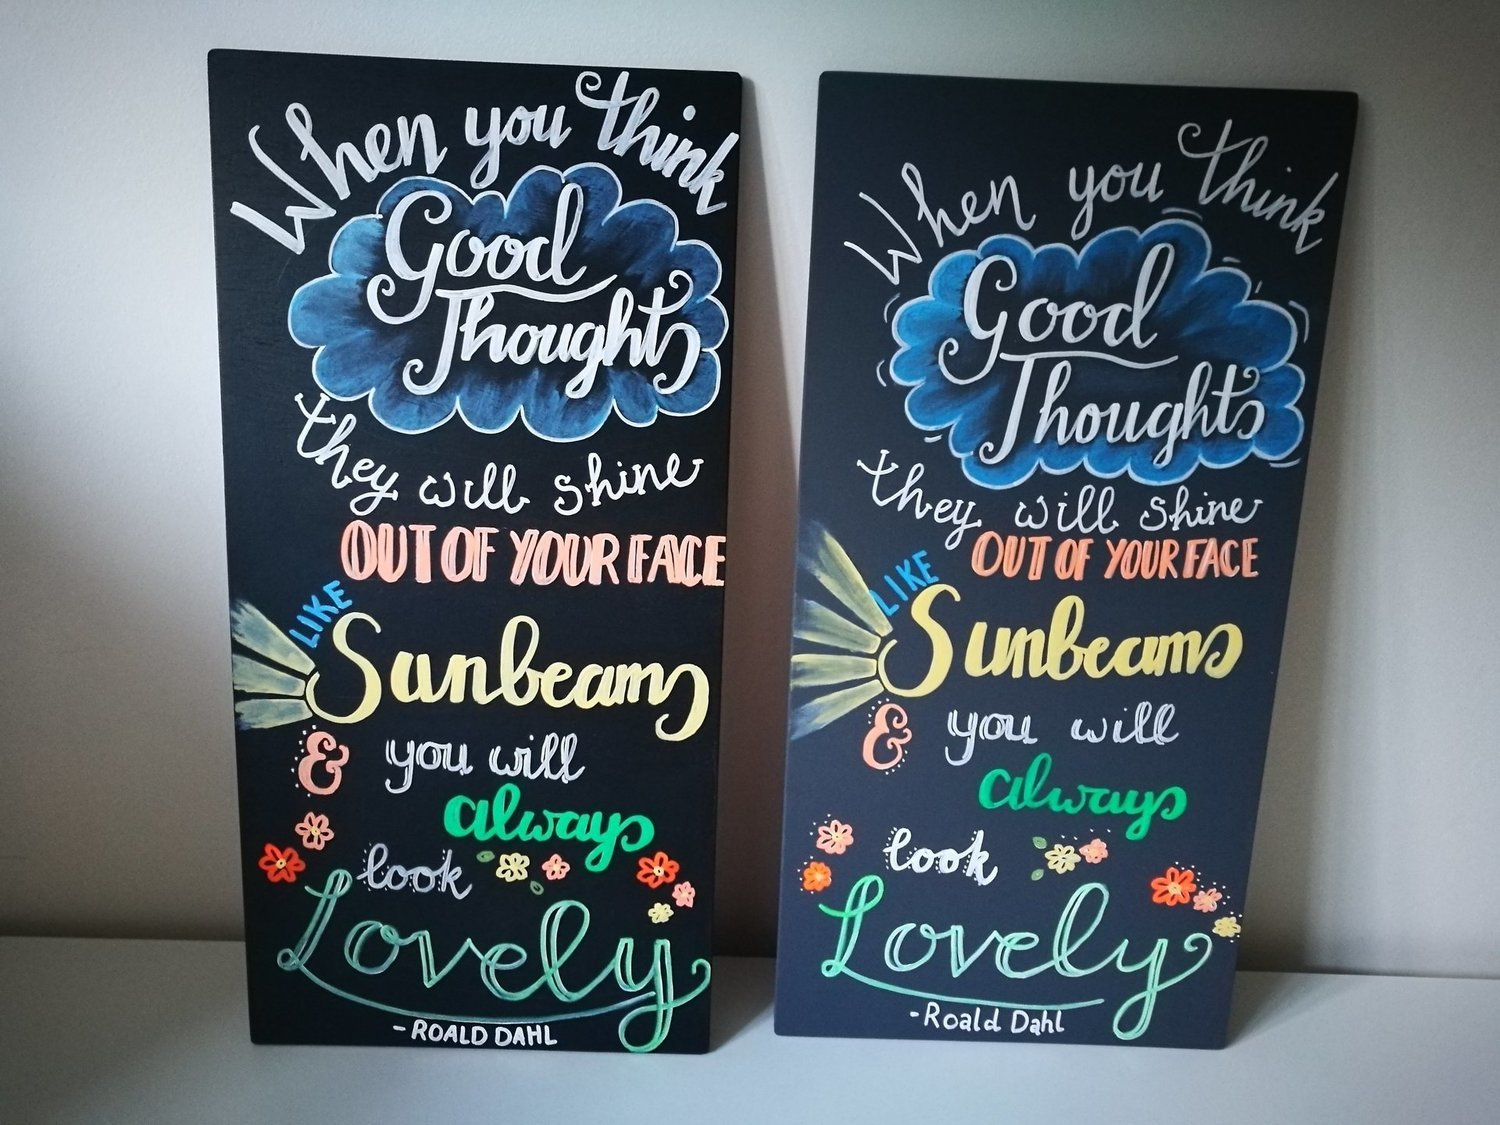 When you think
Good
Thoughts
they will shine
OUT OF YOUR FACE
LIKE
Sunbeams
& you will
always
look
Lovely
- ROALD DAHL
When you think
Good
Thoughts
they will shine
OUT OF YOUR FACE
LIKE
Sunbeams
& you will
always
look
Lovely
- Roald Dahl